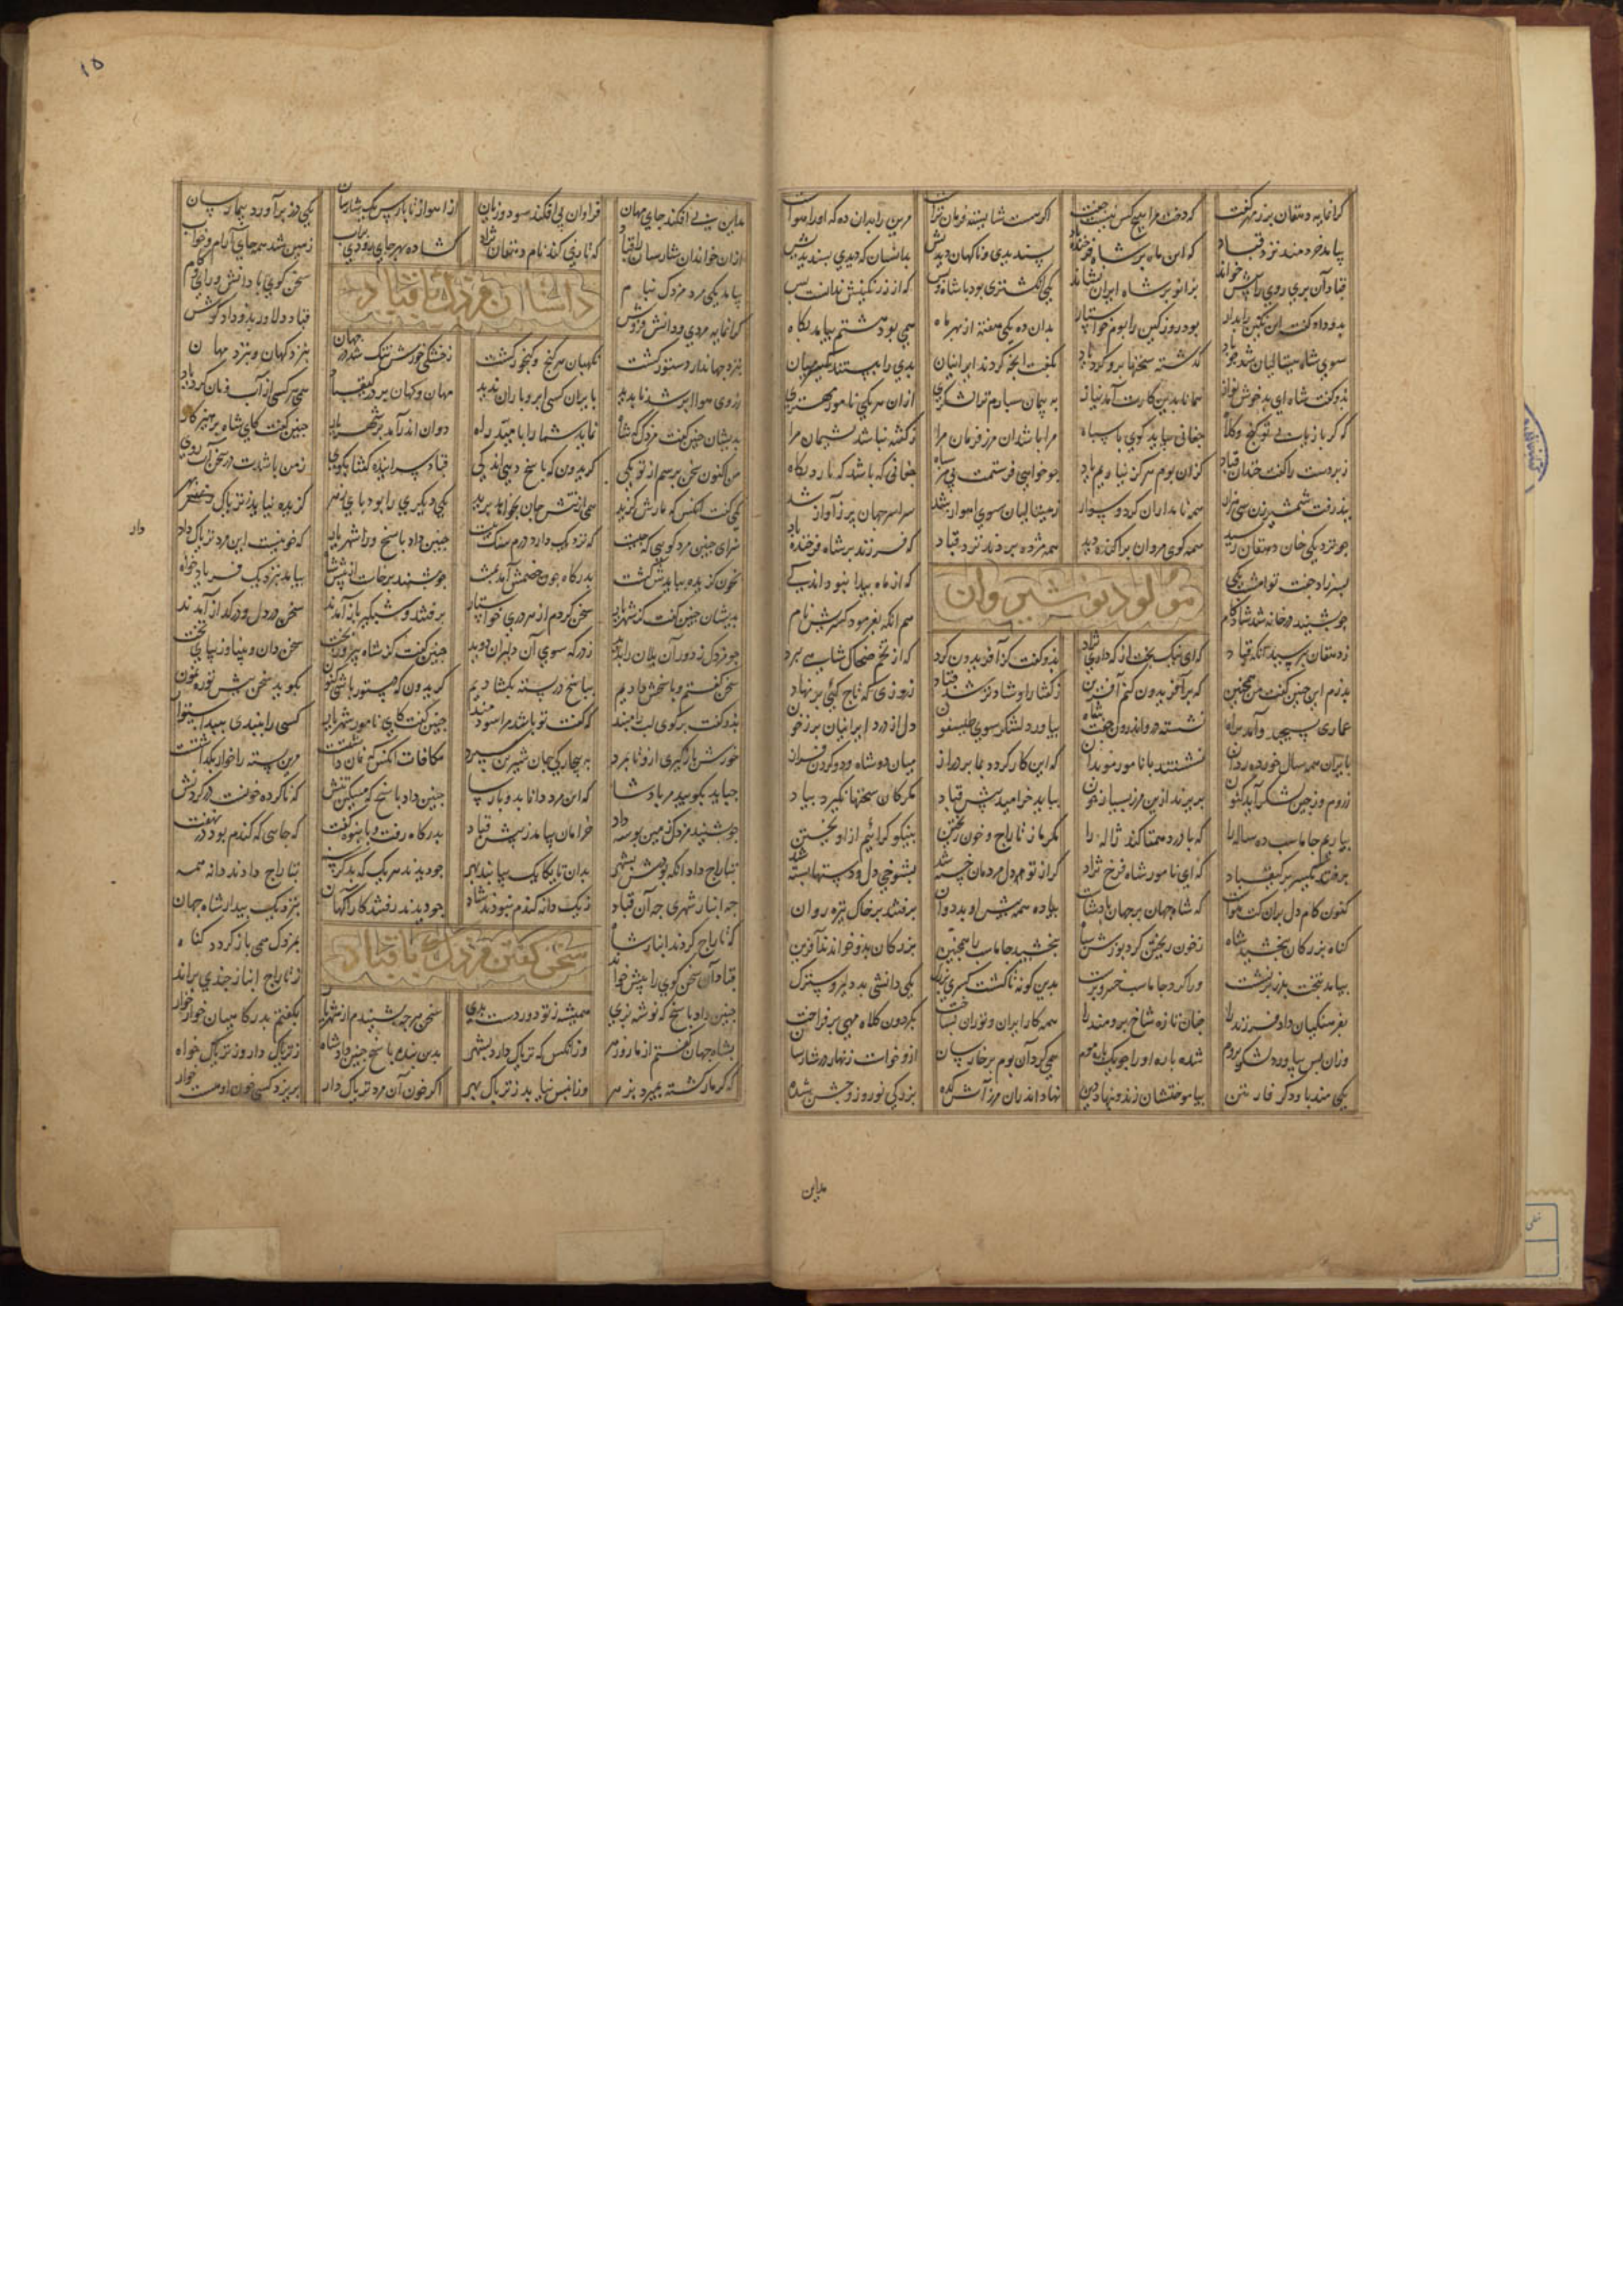 کرانمایه دهقان بزرمهر کفت که دخت مرا هیچ کس نیست جفت اکر هست شایسته فرمان تراست مرین را بدان ده که او را هواست
پیامد خردمند نزد قباد که این ماه بر شاه فرخنده باد پسندیدی و ناکهان دیدیش بدانسان که دیدی پسندیدیش
قباد آن پری روی را پیش خواند بزانو بر شاه ایران نشاند یکی انکشتری بود با شاه و بس که ارز نکینش ندانست کس
بدو داد و کفت این نکین را بدار بود روز کین را بوم خواستار بدان ده یکی هفته از بهر ماه همی بود هشتم بیامد بکاه
سوی شاه هیتالیان شد جو باد کذشته سخنها برو کرد یاد بکفت انجه کردند ایرانیان بدی را ببستند یکسر میان
بدو کفت شاه ای بد خوش نواز همانا بدین کارت آمد نیاز به پیمان سپارم ترا لشکری ازان هر یکی نامور مهتری
که کر باز یابی تو کنج و کلاه جغانی جباید کوی با سپاه مرا باشد آن مرز و فرمان مرا ز کفته نباشد پشیمان مرا
زبردست را کفت خندان قباد کزان بوم هرکز نیاریم یاد جو خواهی فرستمت بی مر سپاه جغانی که باشد که دارد بکاه
بذیرفت شمشیرزن سی هزار همه نامداران کرد و سوار ز هیتالیان سوی اهواز شد سراسر جهان پر ز آواز شد
جو نزدیکی خان دهقان رسید همه کوی مردان پراکنده دید همه مژده بردند نزد قباد که فرزند بر شاه فرخنده باد
پسر زاد جفت تو امشب یکی که از ماه پیدا نبود اندکی
مولود نوشیروان
جو بشنید در خانه شد شاد کام هم آنکه بفرمود کسریش نام
ز دهقان بپرسید آنکه قباد که ای نیک بخت از که داری نژاد بدو کفت کز آفریدون کرد که از تخم ضحاک شاهی ببرد
پدرم این جنین کفت من همجنین که بر آفریدون کنم آفرین ز کفتار او شاد تر شد قباد ز روزی که تاج کیی بر نهاد
عماری بسیجید و آمد براه نشسته درو اندرون جفت شاه بیاورد لشکر سوی طیسفون دل از درد ایرانیان پر ز خون
بایران همه سال خورده ردان نشستند با نامور موبدان که این کار کردد بما بر دراز میان دو شاه و دو کردن فراز
ز روم و ز جین لشکر آید کنون بریزند ازین مرز بسیار خون بباید خرامید پیش قباد مکر کان سخنها نکیرد بیاد
بیاریم جاماسب ده ساله را که با درد همتا کند ژاله را مکرمان ز تاراج و خون ریختن بیکسو کراییم از آویختن
برفتند یکسر بر کیقباد که ای نامور شاه فرخ نژاد کر از تو دل مردمان خسته شد بشوخی دل و دستها بسته شد
کنون کام دل ران کت هواست که شاه جهان بر جهان پادشاست پیاده همه پیش او بد دوان برفتند بر خاک تیره روان
کناه بزرکان ببخشید شاه ز خون ریختن کرد پوزش سپاه ببخشید جاماسب را همجنین بزرکان بدو خواندند آفرین
بیامد بتخت پدر بر نشست ورا کرد جاماسب خسرو پرست بدین کونه تا کشت کسری بزرک یکی دانشی بد دلیر و سترک
بفرهنکیان داد فرزند را جنان تازه شاخ برومند را همه کار ایران و توران بساخت بکردون کلاه مهی بر فراخت
وزان پس بیاورد لشکر بروم شده باره او را جو یک پاره موم همی کرد آن بوم بر خارسان ازو خواست زنهار دو شارسان
یکی مندیا و دکر فارقین بیاموختشان زند و بنهاد دین نهاد اندران مرز آتش کده بزرکی نوروز و جشن سده
مداین
۱۵
مداین پی افکند جای مهان فراوان پی افکند سود و زیان از اهواز تا پارس یک شارسان یکی در برآورد بیمارسان
ازان خواندان شارسان را قباد که تازی کند نام دهقان نژاد کشاده بهر جای رودی پر آب زمین شد همه جای آرام و خواب
داستان مزدک با قباد
بیامد یکی مرد مزدک بنام سخن کوی با دانش و رای و کام
کرانمایه مردی و دانش فروش قباد دلاور بدو داد کوش
بنزد جهاندار دستور کشت نکهبان هر کنج و کنجور کشت ز خشکی خورش تنک شد در جهان بنزد کهان و بنزد مهان
ز روی هوا ابر شد ناپدید بایران کسی ابر و باران ندید مهان و کهان بر در کیقباد همی هر کسی از آب و نان کرد یاد
بدیشان جنین کفت مزدک که شاه نماید شما را بامید راه دوان اندر آمد بر شهریار جنین کفت کای شاه پرهیزکار
من اکنون سخن پرسم از تو یکی کر ایدون که پاسخ دهی اندکی قباد سراینده کفتا بکوی بمن تازه کن در سخن آب روی
یکی کفت انکس که مارش کزید همی از تنش جان بخواهد پرید یکی دیکری را بود پای زهر کزیده نیابد ز تریاک بهر
سزای جنین مرد کویی که جیست که نزدیک دارد درم سنک بیست جنین داد پاسخ ورا شهریار که خونیست این مرد تریاک دار
بخون کزیده ببایدش کشت بدرکاه جون خصمش آمد بمشت جو بشنید برخاست از پیش شاه بیامد بنزدیک فریاد خواه
بدیشان جنین کفت کز شهریار سخن کردم از هر دری خواستار برفتند و شبکیر باز آمدند سخن در دل و در کداز آمدند
جو مزدک ز دور آن یلان را بدید ز درکه سوی آن دلیران دوید جنین کفت کز شاه پیروز بخت سخن دان و بینا و زیبای تخت
سخن کفتم و پاسخش دادیم بپاسخ در بسته بکشادیم کر ایدون که دستور باشی کنون بکوید سخن پیش تو رهنمون
بدو کفت برکوی لب را مبند که کفت تو باشد مرا سودمند جنین کفت کای نامور شهریار کسی را بندی ببند استوار
خورش باز کیری ازو تا بمرد به بیجارکی جان شیرین سپرد مکافات انکس که نان داشت مرین بسته را خوار بکذاشت
جباید بکوید مر پادشا که این مرد دانا بد و پارسا جنین داد پاسخ که میکن تنش که ناکرده خونست در کردنش
جو بشنید مزدک زمین بوسه داد خرامان بیامد ز پیش قباد بدرکاه رفت و بانبوه کفت که جایی که کندم بود در نهفت
بتاراج داد آنکه بودش بشهر بدان تا یکایک بیابند بهر جو دیدند هر یک که بد کرسنه بتاراج دادند دانه همه
جه انبار شهری جه آن قباد ز یک دانه کندم نبودند شاد جو دیدند رفتند کارآکهان بنزدیک بیدار شاه جهان
که تاراج کردند انبار شاه بمزدک همی باز کردد کناه
سخن کفتن مزدک با قباد
قباد آن سخن کوی را پیش خواند ز تاراج انبار جندی براند
جنین داد پاسخ که نوشه بزی همیشه ز تو دور دست بدی سخن هرجه بشنیدم از شهریار بکفتم بدرکاهیان خوار خوار
بشاه جهان کفتم از مار و زهر وز انکس که تریاک دارد بشهر بدین بنده پاسخ جنین داد شاه ز تریاک دار و ز تریاک خواه
که کر مار کشته بمیرد بزهر وز انپس نیابد ز تریاک بهر اکر خون آن مرد تریاک دار بریزد کسی خون او هست خوار
دار